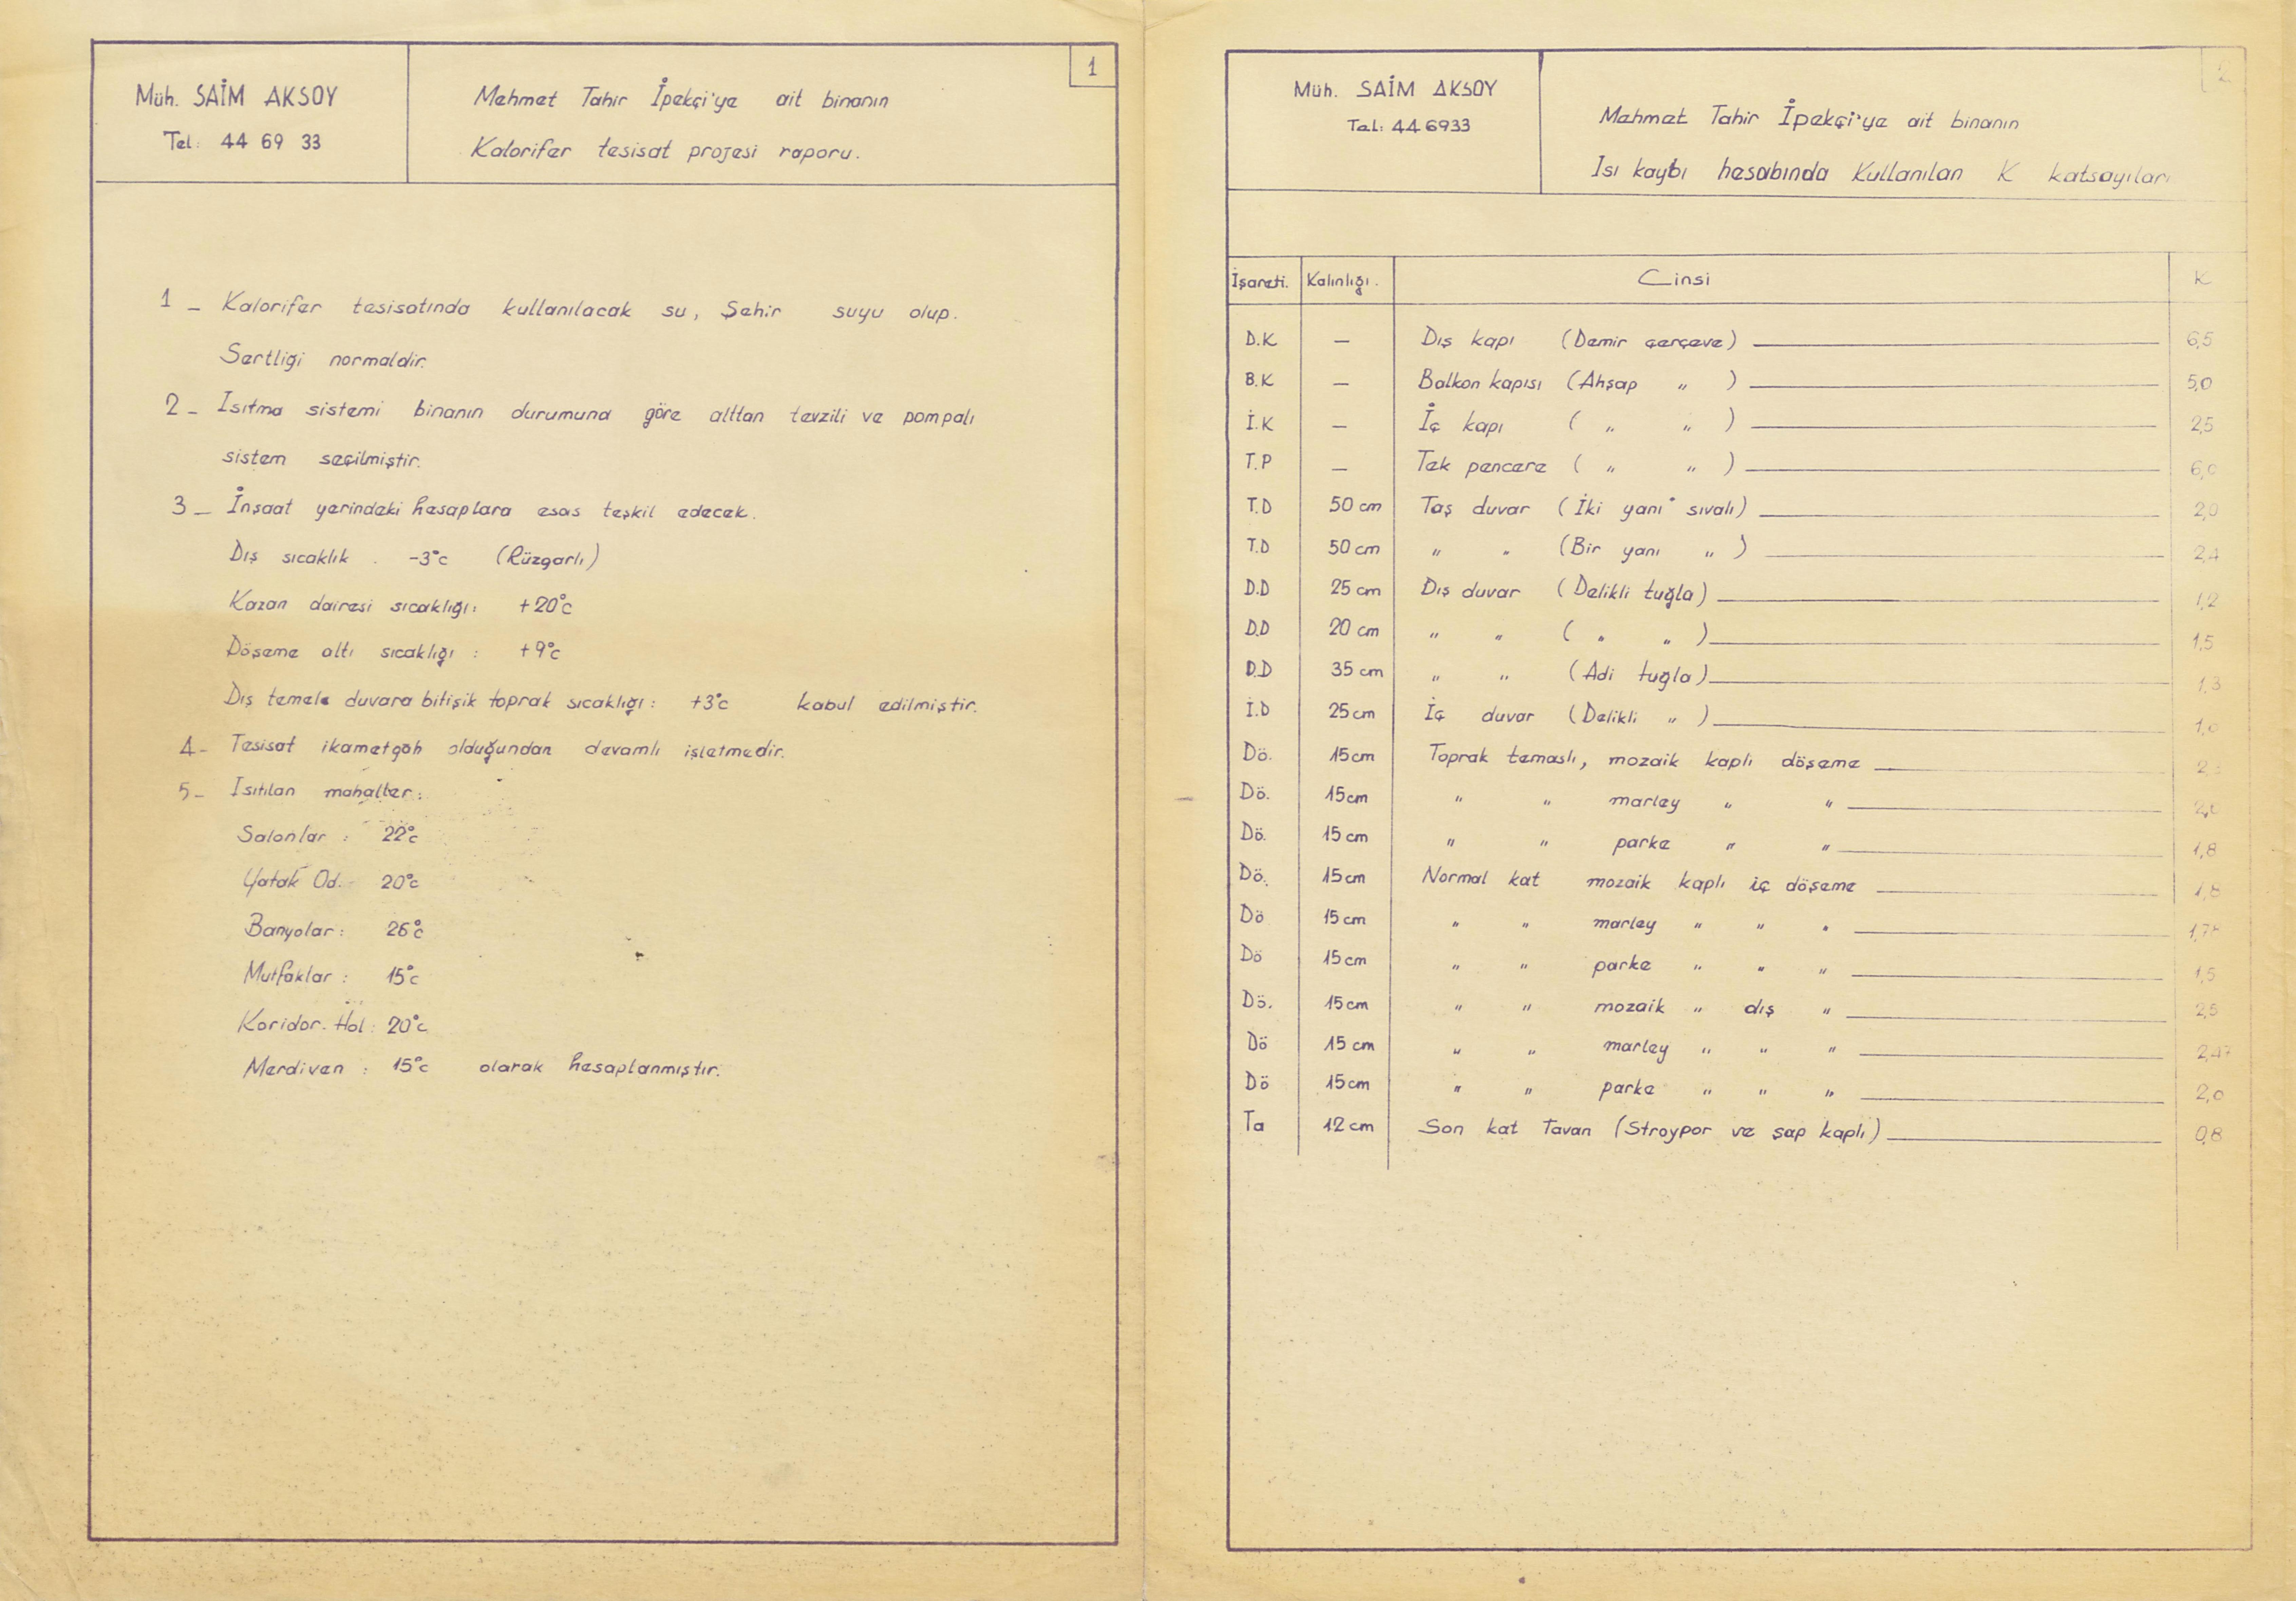 1
Müh. SAİM AKSOY
Tel: 44 69 33
Mehmet Tahir İpekçi'ye ait binanın
Kalorifer tesisat projesi raporu.
1 - Kalorifer tesisatında kullanılacak su, Şehir suyu olup.
Sertliği normaldir.
2 - Isıtma sistemi binanın durumuna göre alttan tevzili ve pompalı
sistem seçilmiştir.
3 - İnşaat yerindeki hesaplara esas teşkil edecek.
Dış sıcaklık . -3°c (Rüzgarlı)
Kazan dairesi sıcaklığı: +20°c
Döşeme altı sıcaklığı : +9°c
Dış temele duvara bitişik toprak sıcaklığı: +3°c kabul edilmiştir.
4- Tesisat ikametgâh olduğundan devamlı işletmedir.
5- Isıtılan mahaller:
Salonlar : 22°c
Yatak Od.- 20°c
Banyolar: 26°c
Mutfaklar : 15°c
Koridor. Hol: 20°c
Merdiven : 15°c olarak hesaplanmıştır.
2
Müh. SAİM AKSOY
Tel: 44 6933
Mehmet Tahir İpekçi'ye ait binanın
Isı kaybı hesabında Kullanılan K katsayıları
İşareti. Kalınlığı. Cinsi K
D.K — Dış kapı (Demir çerçeve) 6,5
B.K — Balkon kapısı (Ahşap " ) 5,0
İ.K — İç kapı ( " " ) 2,5
T.P — Tek pencere ( " " ) 6,0
T.D 50 cm Taş duvar (İki yanı sıvalı) 2,0
T.D 50 cm " " (Bir yanı " ) 2,4
D.D 25 cm Dış duvar (Delikli tuğla) 1,2
D.D 20 cm " " ( " " ) 1,5
D.D 35 cm " " (Adi tuğla) 1,3
İ.D 25 cm İç duvar (Delikli " ) 1,0
Dö. 15 cm Toprak temaslı, mozaik kaplı döşeme
Dö. 15 cm " " marley " "
Dö. 15 cm " " parke " " 1,8
Dö. 15 cm Normal kat mozaik kaplı iç döşeme 1,8
Dö 15 cm " " marley " " " 1,78
Dö 15 cm " " parke " " " 1,5
Dö. 15 cm " " mozaik " dış " 2,5
Dö 15 cm " " marley " " " 2,47
Dö 15 cm " " parke " " " 2,0
Ta 12 cm Son kat Tavan (Stroypor ve şap kaplı) 0,8